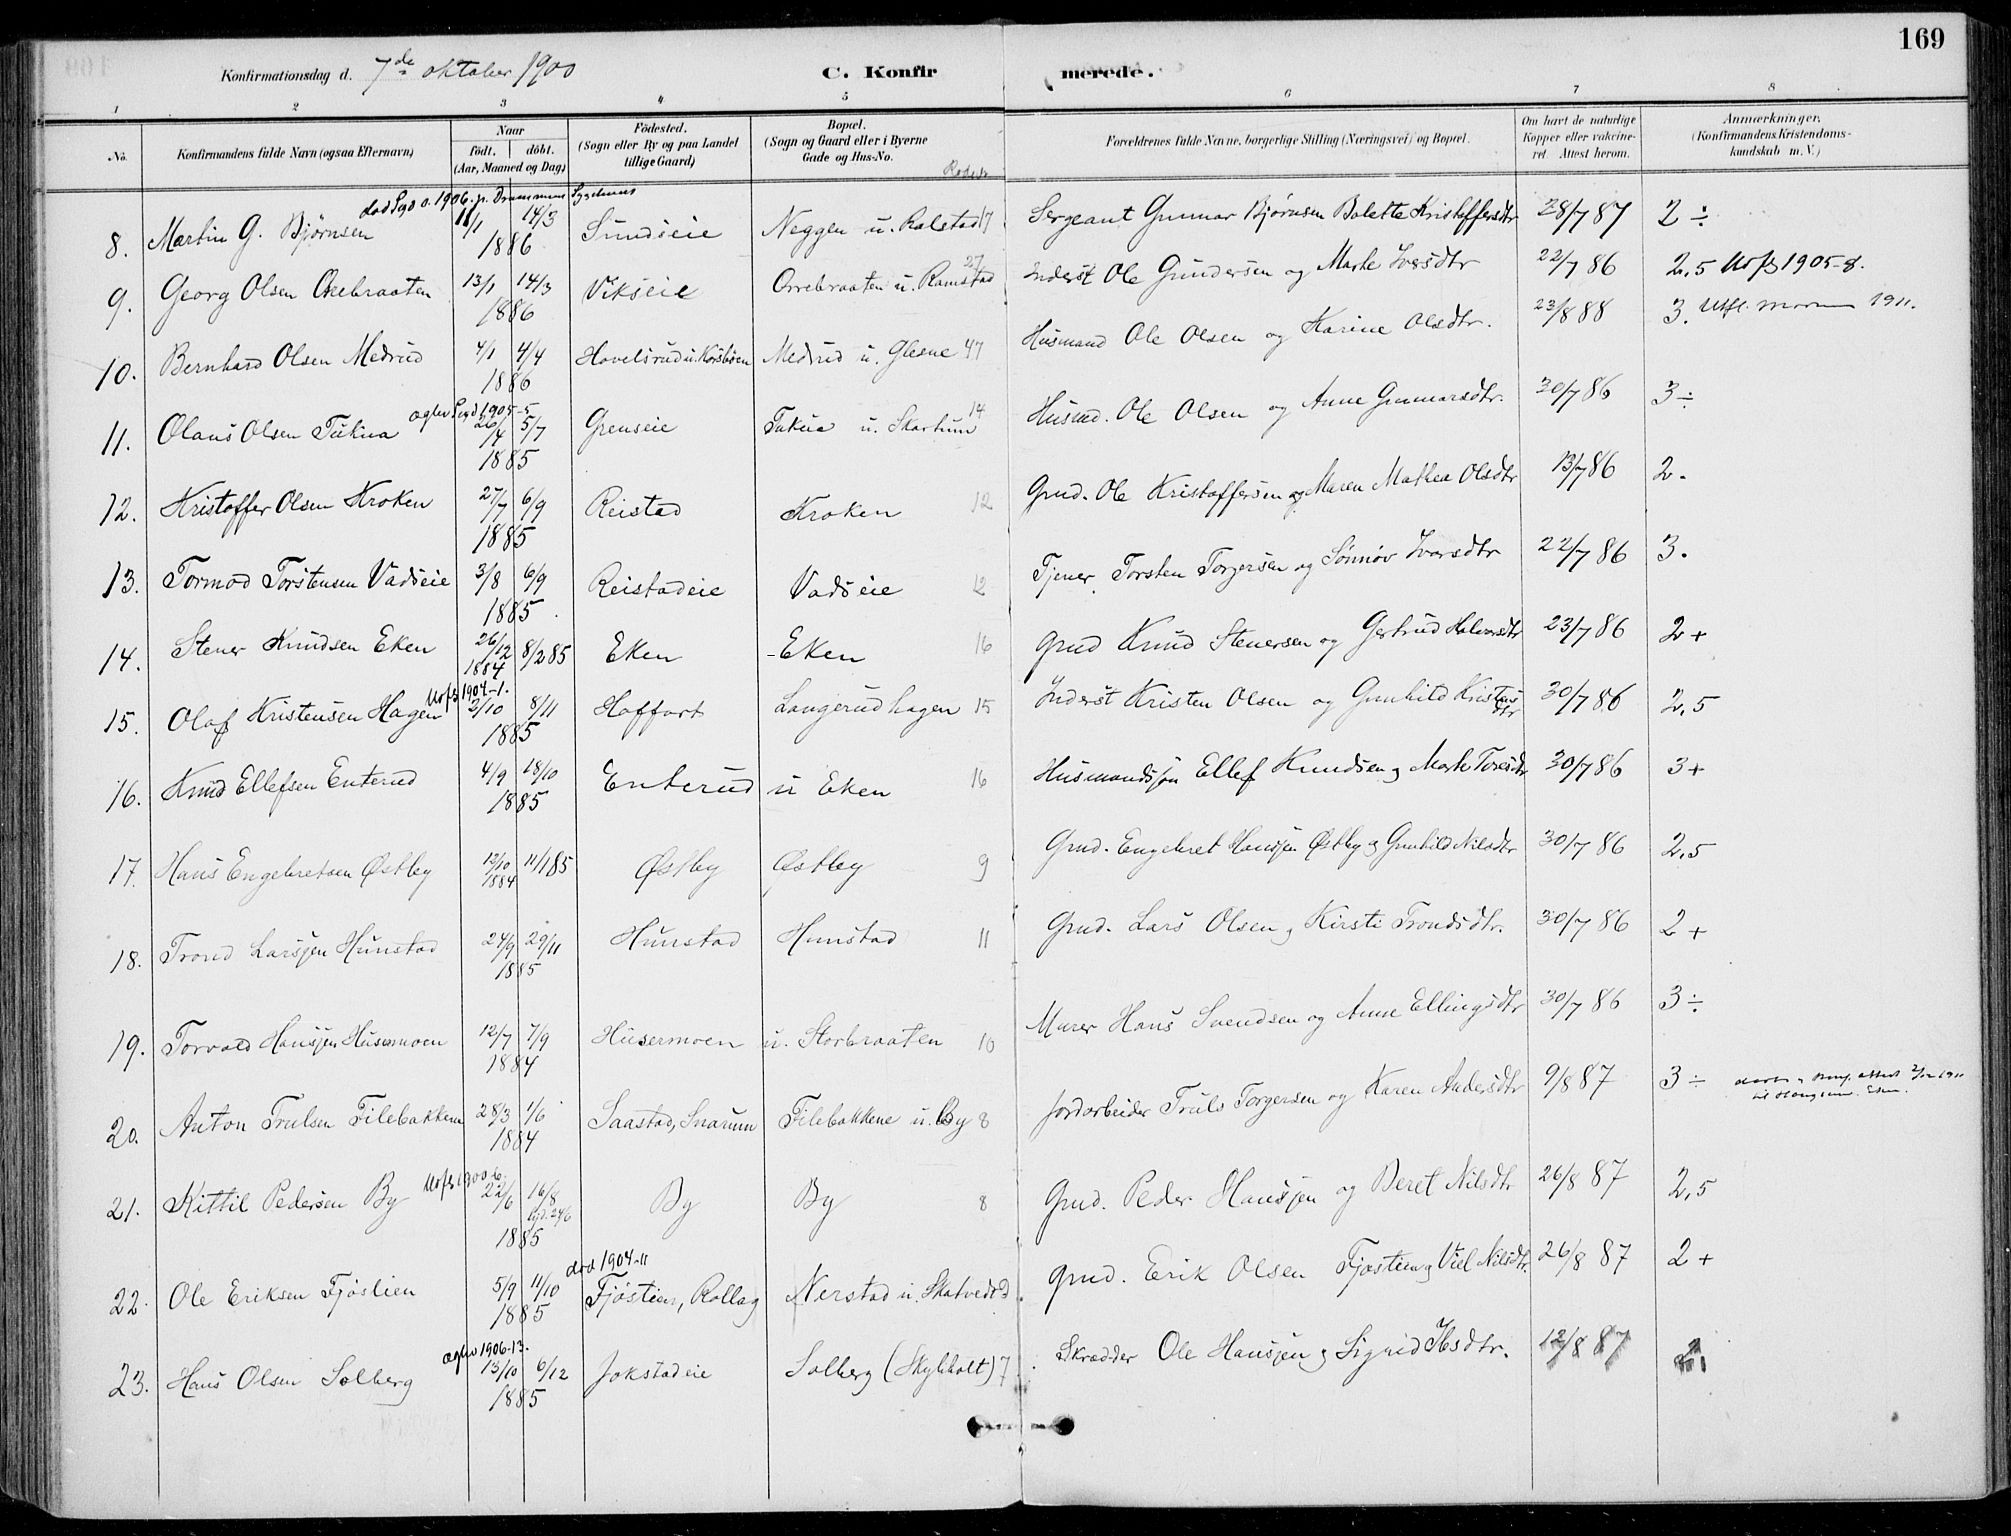 169
Konfirmationsdag d. 7de oktober 1900 C. Konfirmerede.
1 2 3 4 5 6 7 8
No. Konfirmandens fulde Navn (ogsaa Efternavn) Naar født. døbt. (Aar, Maaned og Dag) Fødested. (Sogn eller By og paa Landet tillige Gaard) Bopæl. (Sogn og Gaard eller i Byerne Gade og Hus-No. Forældrenes fulde Navne, borgerlige Stilling (Næringsvei) og Bopæl. Om havt de naturlige Kopper eller vakcineret. Attest herom. Anmærkninger. (Konfirmandens Kristendomskundskab m. V.)
8. Martin G. Bjørnsen 11/1 14/3 1886 Sundseie Neggen u. Ralstad 17 Sergeant Gunnar Bjørnsen Bolette Kristoffersdtr 28/7 87 2 ÷
9. Georg Olsen 13/1 14/3 1886 Vikseie Orrebraaten u. Ramstad 27 Inderst Ole Gundersen og Marte Iversdtr 22/7 86 2,5 1905-8.
10. Bernhard Olsen Medrud 4/1 4/4 1886 Hovelsrud u. Korsbøen Medrud u. Glesne 47 Husmand Ole Olsen og Karine Olsdtr. 23/8 88 3. Utfl. 1911.
11. Olaus Olsen Tukua 1905-5 26/4 5/7 1885 Grenseie Tukua u. Skartum 14 Husmd. Ole Olsen og Anne Gunnarsdtr. 30/7 86 3 ÷
12. Kristoffer Olsen Kroken 27/7 6/9 1885 Reistad Kroken 12 Grud. Ole Kristoffersen og Maren Mathea Olsdtr 13/7 86 2.
13. Tormod Torstensen Vadseie 3/8 6/9 1885 Reistadeie Vadseie 12 Tjener. Torsten Torgersen og Sønnøv Ivarsdtr 22/7 86 3.
14. Stener Knudsen Eken 26/12 1884 8/2 85 Eken Eken 16 Grud Knud Stenersen og Gertrud Halvorsdtr 23/7 86 2 +
15. Olaf Kristensen Hagen 1904-1. 2/10 8/11 1885 Hoffart Langerudhagen 15 Inderst Kristen Olsen og Gunhild Kristensdtr 30/7 86 2,5
16. Knud Ellefsen Enterud 4/9 18/10 1885 Enterud u Eken 16 Husmandssøn Ellef Knudsen og Marte Toresdtr 30/7 86 3 +
17. Hans Engebretsen Østby 12/10 1884 11/1 85 Østby Østby 9 Grud. Engebret Hanssen Østby og Gunhild Nilsdtr 30/7 86 2,5
18. Trond Larssen Hunstad 24/9 29/11 1885 Hunstad Hunstad 11 Grud. Lars Olsen og Kirsti Trondsdtr. 30/7 86 2 +
19. Torvald Hanssen Husermoen 12/7 7/9 1884 Husermoen u. Storbraaten 10 Murer Hans Svendsen og Anne Ellingsdtr 30/7 86 3 ÷
20. Anton Trulsen Filebakkene 28/3 1/6 1884 Saastad, Snarum Filebakkene u. By 8 Jordarbeider Truls Torgersen og Karen Andersdtr 9/8 87 3 ÷
21. Kittil Pedersen By 1900-6. 22/6 16/8 1885 By By 8 Grud. Peder Hanssen og Beret Nilsdtr 26/8 87 2,5
22. Ole Eriksen Fjøslien 5/9 11/10 1885 død 1904-11 Fjøslien, Rollag Nerstad u. Skatvedt Grud. Erik Olsen Fjøslien og Viel Nilsdtr. 26/8 87 2 +
23. Hans Olsen Solberg 1906-13. 13/10 6/12 1885 Jokstadeie Solberg (Skybholt) 7 Skrædder Ole Hanssen og Sigrid Ibsdtr. 12/8 87 2.